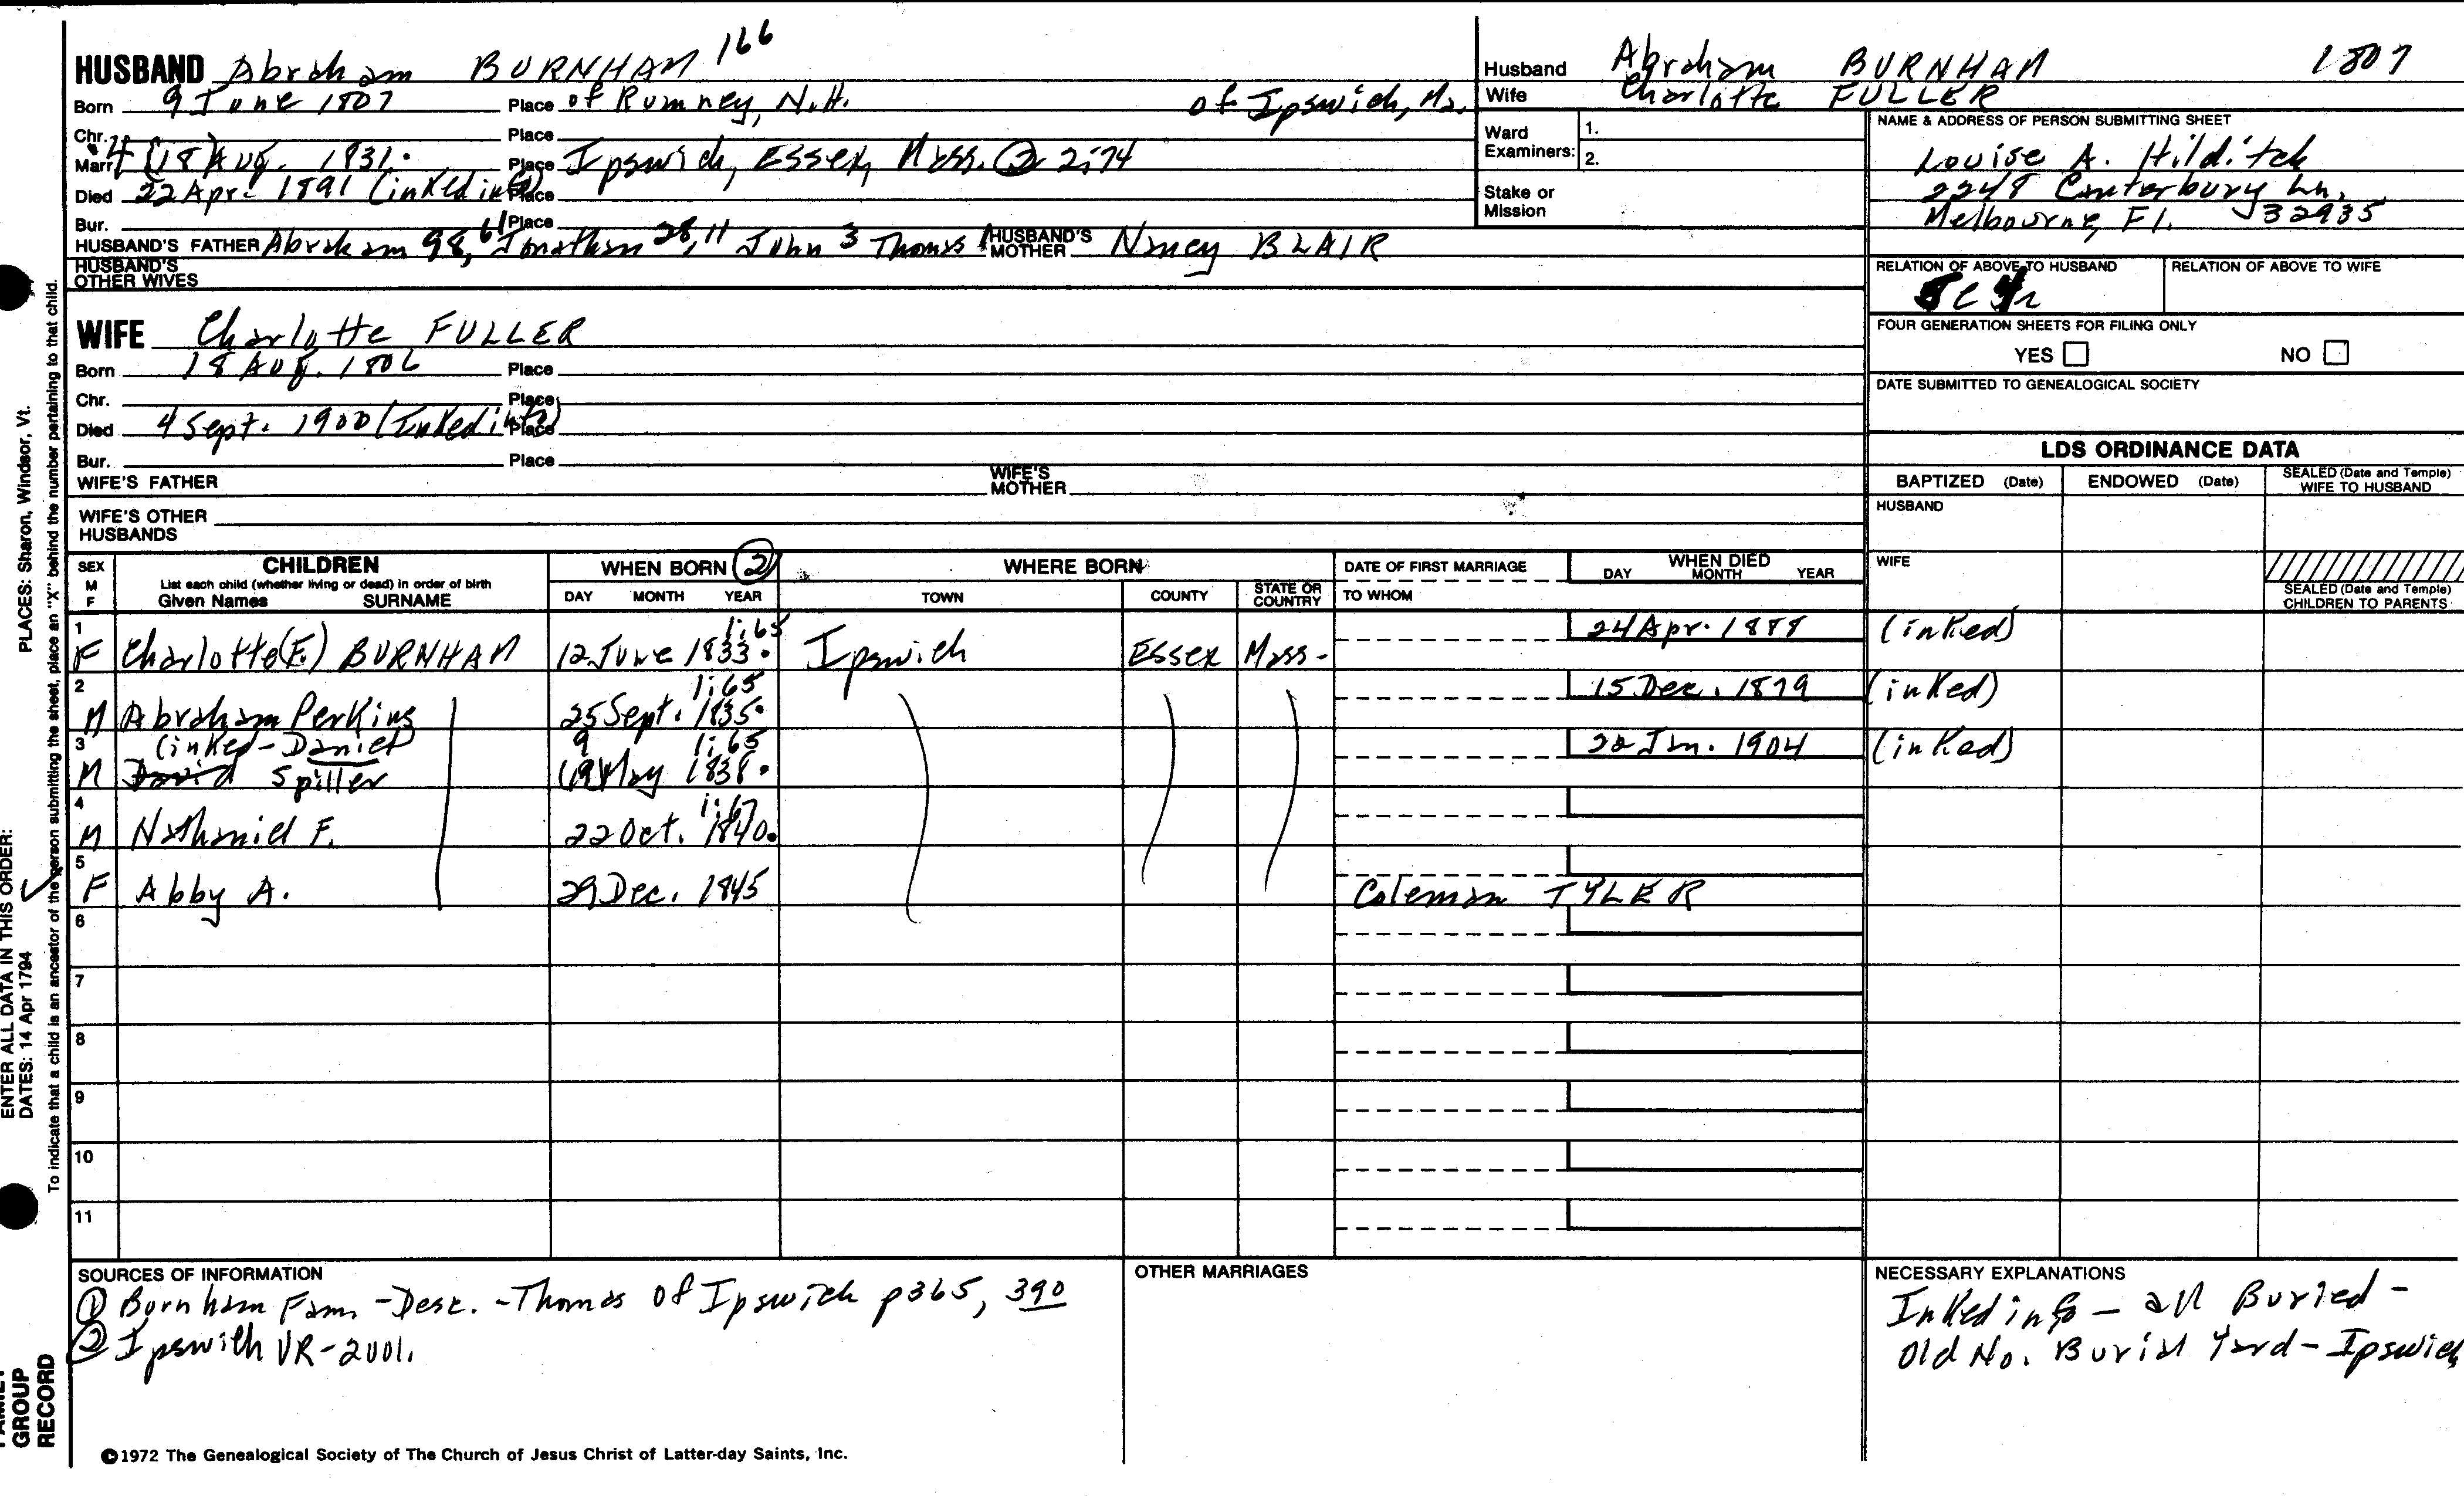 HUSBAND Abraham BURNHAM 166
Born 9 June 1807 Place of Rumney, N.H. of Ipswich, Ma.
Chr. Place
Marr. 4 (18) Aug. 1831. Place Ipswich, Essex, Mass. ② 2:74
Died 22 Apr. 1891 (inked info) Place
Bur. Place
HUSBAND'S FATHER Abraham 98, Jonathan 61, 28, 11 John 3 Thomas 1 HUSBAND'S MOTHER Nancy BLAIR
HUSBAND'S OTHER WIVES
Husband Abraham BURNHAM 1807
Wife Charlotte FULLER
Ward Examiners: 1.
2.
Stake or Mission
NAME & ADDRESS OF PERSON SUBMITTING SHEET
Louise A. Hilditch
2248 Canterbury Ln.
Melbourne, Fl. 32935
RELATION OF ABOVE TO HUSBAND RELATION OF ABOVE TO WIFE
FOUR GENERATION SHEETS FOR FILING ONLY
YES NO
DATE SUBMITTED TO GENEALOGICAL SOCIETY
WIFE Charlotte FULLER
Born 18 Aug. 1806 Place
Chr. Place
Died 4 Sept. 1900 (Inked info) Place
Bur. Place
WIFE'S FATHER WIFE'S MOTHER
WIFE'S OTHER HUSBANDS
LDS ORDINANCE DATA
BAPTIZED (Date) ENDOWED (Date) SEALED (Date and Temple) WIFE TO HUSBAND
HUSBAND
WIFE
SEALED (Date and Temple) CHILDREN TO PARENTS
SEX M F CHILDREN List each child (whether living or dead) in order of birth Given Names SURNAME
WHEN BORN ② DAY MONTH YEAR
WHERE BORN TOWN COUNTY STATE OR COUNTRY
DATE OF FIRST MARRIAGE TO WHOM
WHEN DIED DAY MONTH YEAR
1 F Charlotte (E.) BURNHAM 12 June 1833. 1:65 Ipswich Essex Mass- 24 Apr. 1888 (inked)
2 M Abraham Perkins 25 Sept. 1835. 1:65 15 Dec. 1879 (inked)
3 (inked-Daniel) 9 1:65 22 Jan. 1904 (inked)
M David Spiller (19) May 1838.
4 M Nathaniel F. 22 Oct. 1840. 1:67
5 F Abby A. 29 Dec. 1845 Coleman TYLER
6
7
8
9
10
11
SOURCES OF INFORMATION
① Burnham Fam. -Desc. -Thomas of Ipswich p365, 390
② Ipswich VR-2001.
OTHER MARRIAGES
NECESSARY EXPLANATIONS
Inked info - all Buried -
Old No. Burial Yard - Ipswich
©1972 The Genealogical Society of The Church of Jesus Christ of Latter-day Saints, Inc.
PLACES: Sharon, Windsor, Vt.
ENTER ALL DATA IN THIS ORDER:
DATES: 14 Apr 1794
To indicate that a child is an ancestor of the person submitting the sheet, place an "X" behind the number pertaining to that child.
GROUP
RECORD